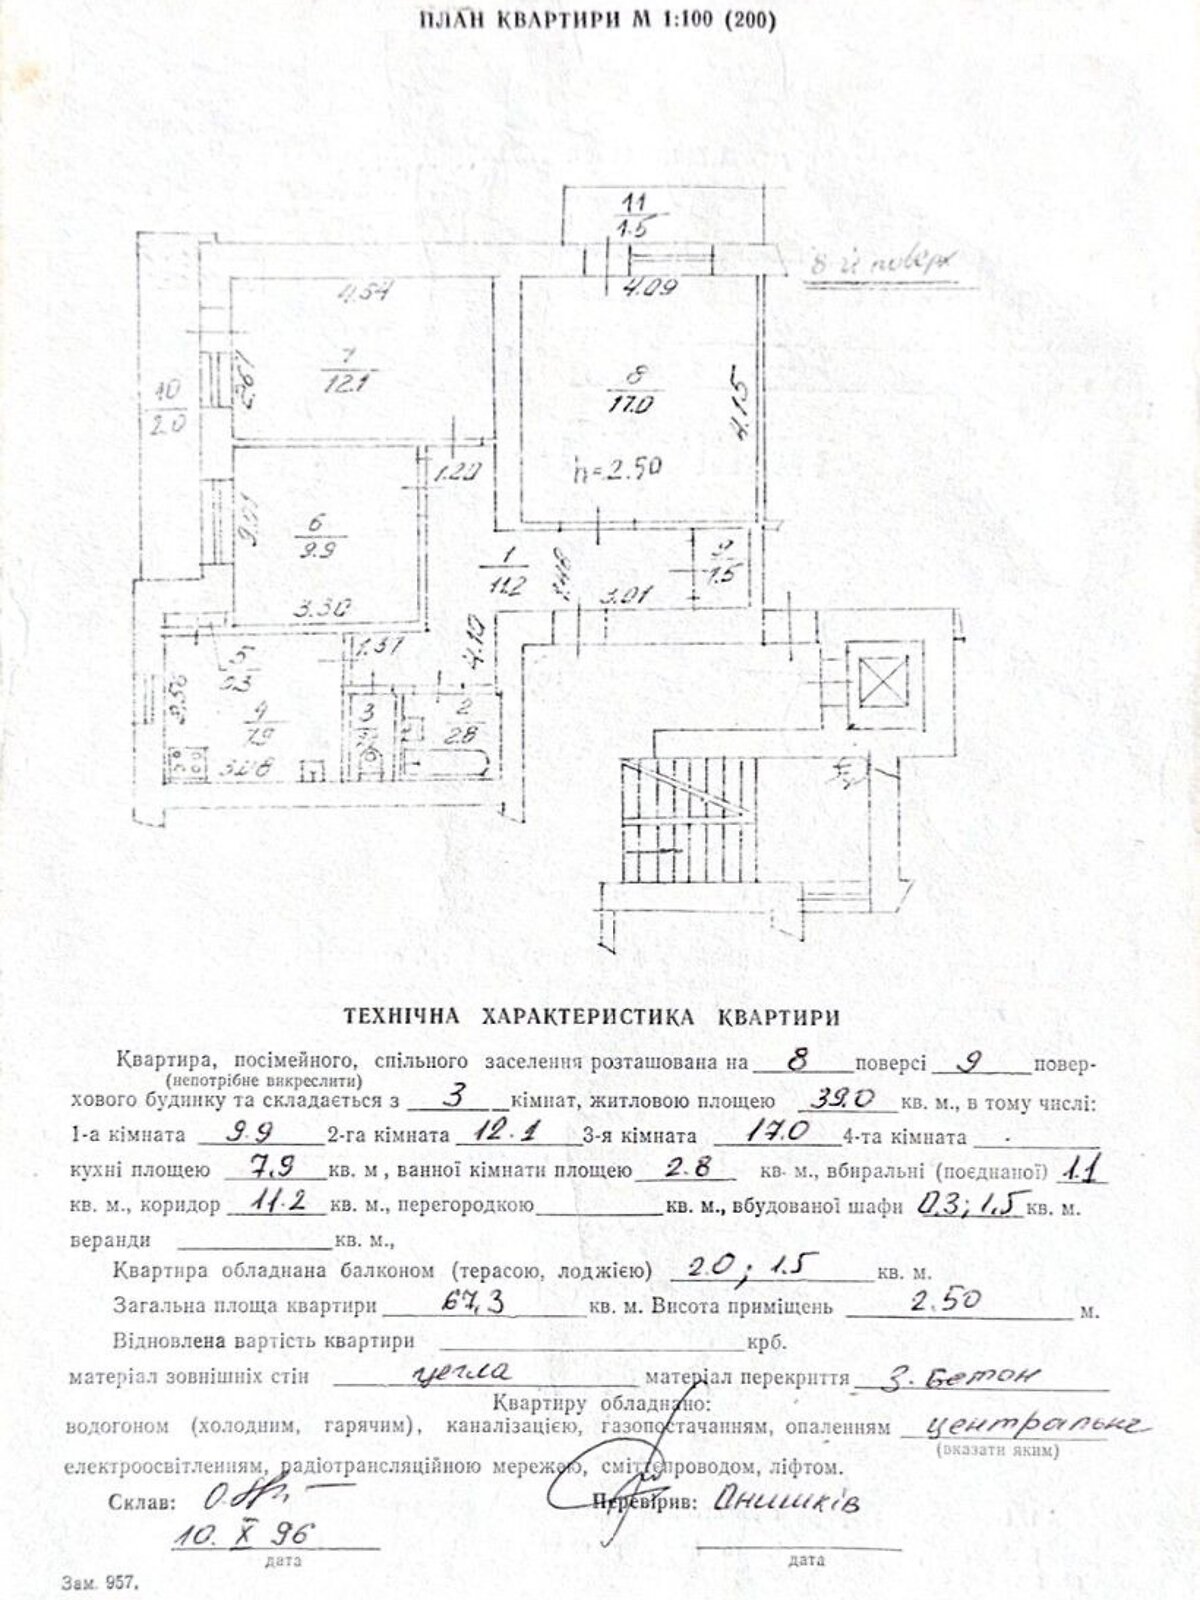 ПЛАН КВАРТИРИ М 1:100 (200)
11
1.5
8-й поверх
4.54
4.09
7
12.1
8
17.0
4.15
10
2.0
h=2.50
1.20
6
9.9
1
11.2
1.48
9
1.5
3.01
3.30
4.10
1.37
5
0.3
4
7.9
3
2
2.8
3.08
ТЕХНІЧНА ХАРАКТЕРИСТИКА КВАРТИРИ
Квартира, посімейного, спільного заселення розташована на 8 поверсі 9 повер-
(непотрібне викреслити)
хового будинку та складається з 3 кімнат, житловою площею 39.0 кв. м., в тому числі:
1-а кімната 9.9 2-га кімната 12.1 3-я кімната 17.0 4-та кімната -
кухні площею 7.9 кв. м , ванної кімнати площею 2.8 кв. м., вбиральні (поєднаної) 1.1
кв. м., коридор 11.2 кв. м., перегородкою кв. м., вбудованої шафи 0.3; 1.5 кв. м.
веранди кв. м.,
Квартира обладнана балконом (терасою, лоджією) 2.0; 1.5 кв. м.
Загальна площа квартири 67,3 кв. м. Висота приміщень 2.50 м.
Відновлена вартість квартири крб.
матеріал зовнішніх стін цегла матеріал перекриття з. бетон
Квартиру обладнано:
водогоном (холодним, гарячим), каналізацією, газопостачанням, опаленням центральне
(вказати яким)
електроосвітленням, радіотрансляційною мережею, сміттєпроводом, ліфтом.
Склав: Перевірив: Онишків
10. X 96
дата дата
Зам. 957.